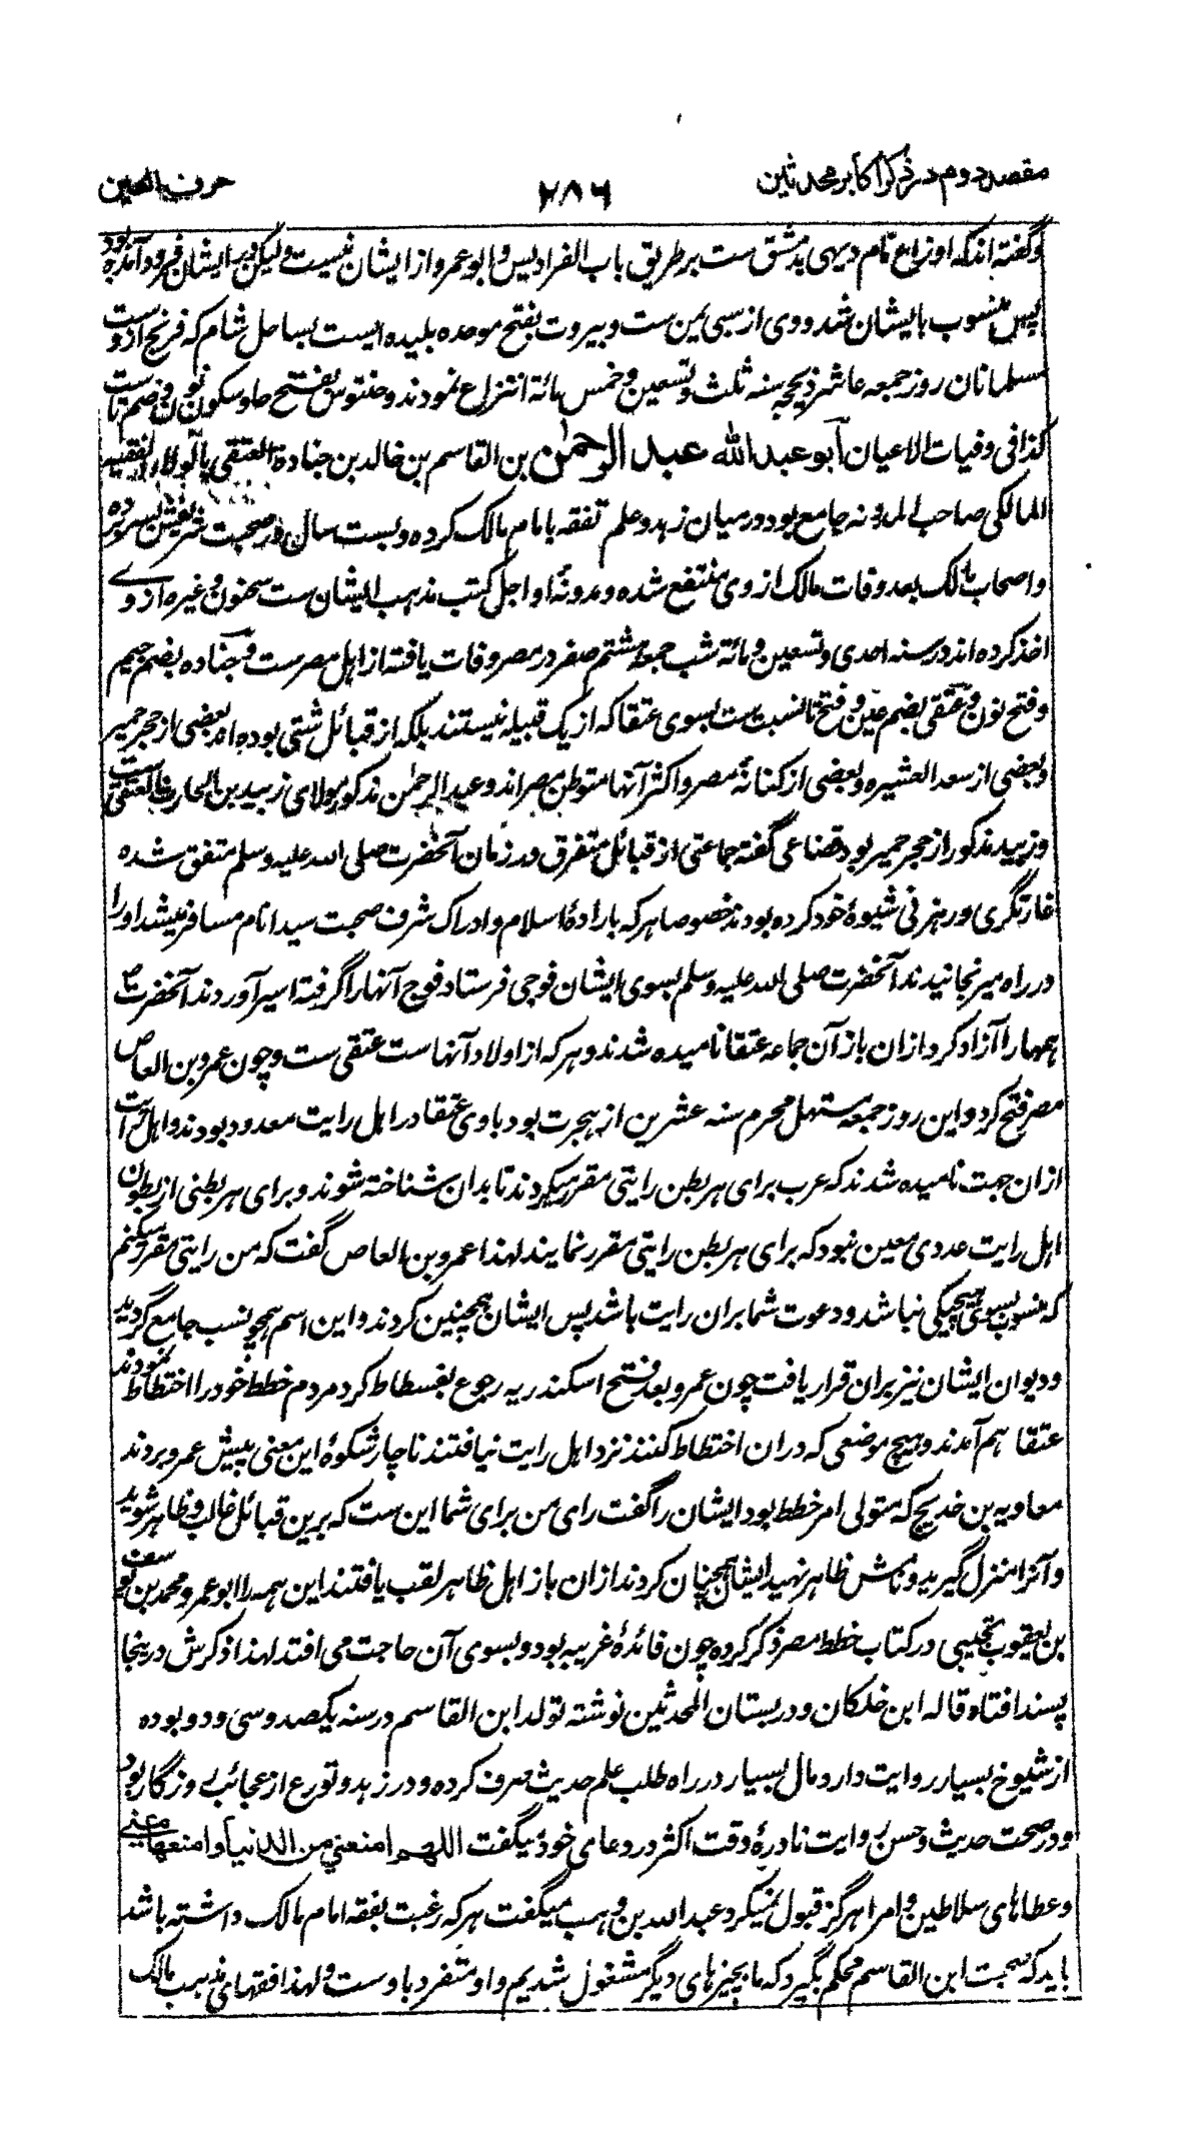 مقصد دوم در ذکر اکابر محدثین ۲۸۶ حرف العین
و گفته اند که اوزاع نام دیهی بدمشق ست بر طریق باب الفرادیس و ابو عمرو از ایشان نیست و لیکن بایشان فرود آمده بود
پس منسوب بایشان شد و وی از سبی یمن ست و بیروت بفتح موحده بلیده ایست بساحل شام که فرنج از دست
مسلمانان روز جمعه عاشر ذیحجه سنه ثلث و تسعین و خمس مائة انتزاع نمودند و حنتوس بفتح حا و سکون نون و ضم تا ست
کذا فی وفیات الاعیان ابو عبد الله عبد الرحمن بن القاسم بن خالد بن جنادة العتقی بالولاء الفقیه
المالکی صاحب المدونه جامع بود درمیان زهد و علم تفقه بامام مالک کرده و بیست سال در صحبت شریفش بسر برده
و اصحاب مالک بعد وفات مالک از وی منتفع شده و مدونهٔ او اجل کتب مذهب ایشان ست سحنون و غیره از وے
اخذ کرده اند در سنه احدی و تسعین و مائة شب جمعه هشتم صفر در مصر وفات یافته از اهل مصر ست و جناده بضم جیم
و فتح نون و عتقی بضم عین و فتح تا نسبت ست بسوی عتقا که از یک قبیله نیستند بلکه از قبائل شتی بوده اند بعضی از حجر حمیر
و بعضی از سعد العشیره و بعضی از کنانهٔ مصر و اکثر آنها متوطن مصر اند و عبد الرحمن مذکور مولای زبید بن الحارث العتقی ست
و زبید مذکور از حجر حمیر بود قضاعی گفته جماعتی از قبائل متفرق در زمان آنحضرت صلی الله علیه وسلم متفق شده
غارتگری و رهزنی شیوهٔ خود کرده بودند خصوصا هر که بارادهٔ اسلام و ادراک شرف صحبت سید انام مسافر میشد او را
در راه میرنجانیدند آنحضرت صلی الله علیه وسلم بسوی ایشان فوجی فرستاد فوج آنها را گرفته اسیر آوردند آنحضرت ص
همها را آزاد کرد ازان باز آن جماعه عتقا نامیده شدند و هر که از اولاد آنهاست عتقی ست و چون عمرو بن العاص
مصر فتح کرد و این روز جمعه مستهل محرم سنه عشرین از هجرت بود با وی عتقا در اهل رایت معدود بودند و اهل رایت
ازان جهت نامیده شدند که عرب برای هر بطن رایتی مقرر میکردند تا بدان شناخته شوند و برای هر بطنی از بطون
اهل رایت عددی معین نبود که برای هر بطن رایتی مقرر نمایند لهذا عمرو بن العاص گفت که من رایتی مقرر میکنم
که منسوب بسوی هیچیکی نباشد و دعوت شما بران رایت باشد پس ایشان همچنین کردند و این اسم همچو نسب جامع گردید
و دیوان ایشان نیز بران قرار یافت چون عمرو بعد فتح اسکندریه رجوع بفسطاط کرد مردم خطط خود را اختطاط نمودند
عتقا هم آمدند و هیچ موضعی که دران اختطاط کنند نزد اهل رایت نیافتند ناچار شکوهٔ این معنی پیش عمرو بردند
معاویه بن خدیج که متولی امر خطط بود ایشان را گفت رای من برای شما این ست که برین قبائل غالب و ظاهر شوید
و آنرا منزل گیرید و نامش ظاهر نهید ایشان همچنان کردند ازان باز اهل ظاهر لقب یافتند این همه را ابو عمرو محمد بن یوسف
بن یعقوب تجیبی در کتاب خطط مصر ذکر کرده چون فائدهٔ غریبه بود و بسوی آن حاجت می افتد لهذا ذکرش درینجا
پسند افتاد قاله ابن خلکان و در بستان المحدثین نوشته تولد ابن القاسم در سنه یکصد و سی و دو بوده
از شیوخ بسیار روایت دارد و مال بسیار در راه طلب علم حدیث صرف کرده و در زهد و تورع از عجائب روزگار بود
و در صحت حدیث و حسن روایت نادرهٔ وقت اکثر در دعای خود میگفت اللهم امنعنی من الدنیا و امنعها منی
و عطاهای سلاطین و امرا هرگز قبول نمیکرد عبد الله بن وهب میگفت هر که رغبت بفقه امام مالک داشته باشد
باید که صحبت ابن القاسم محکم بگیرد که ما بچیزهای دیگر مشغول شدیم و او متفرد باوست و لهذا فقهای مذهب مالک